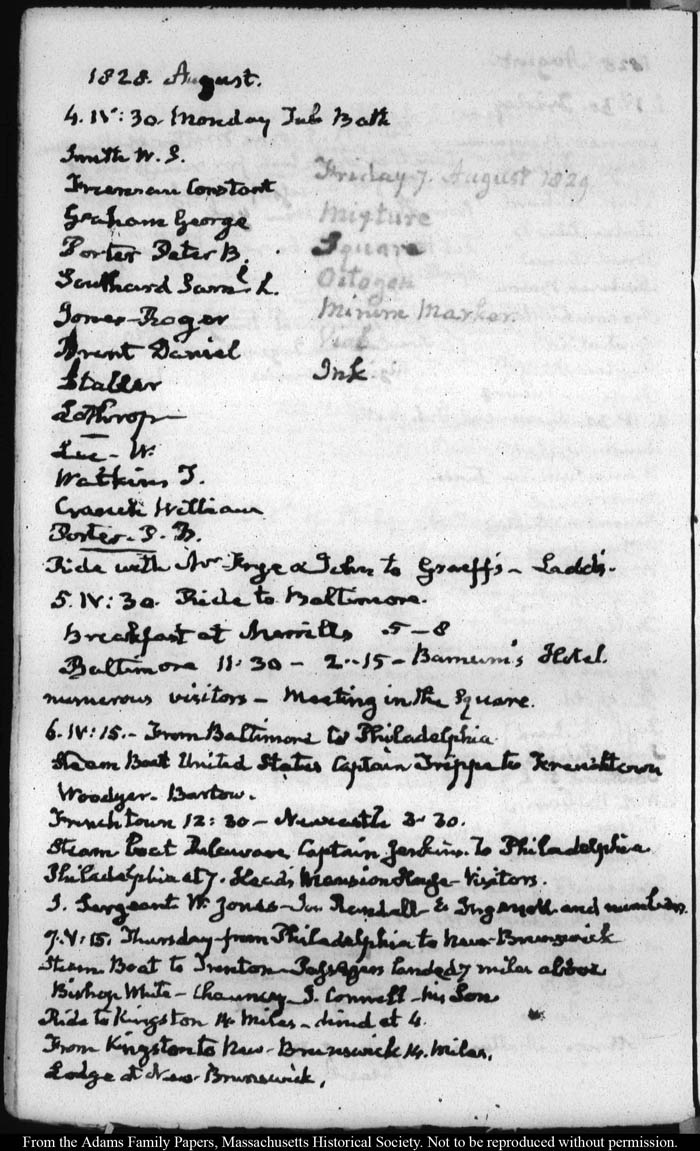 1828. August.
4. IV:30. Monday Tub Bath
Smith W. S.
Freeman Constant
Graham George
Porter Peter B.
Southard Saml. L.
Jones Roger
Brent Daniel
Lothrop
Lee - W.
Watkins T.
Cranch William
Porter. P. B.
Friday 7. August 1829
Mixture
Square
Octogon
Minim Marker
Vial
Ink
Ride with Mr Frye & John to Graeff's - Ladd's.
5. IV:30. Ride to Baltimore.
Breakfast at Merrills .5 - 8
Baltimore 11:30 - 2..15 - Barnum's Hotel.
numerous visitors - Meeting in the Square.
6. IV:15. - From Baltimore to Philadelphia.
Steam Boat United States Captain Trippe to Frenchtown
Woodyer. Bartow.
Frenchtown 12:30 - Newcastle 3.30.
Steam boat Delaware, Captain Jenkins. to Philadelphia
Philadelphia at 7. Head's Mansion House - Visitors.
J. Sergeant W. Jones - Randall - Ingersoll and
7. V:15. Thursday - from Philadelphia to New-Brunswick
Steam Boat to Trenton - Passages landed 7 miles above
Bishop White - Chauncey - J. Connell - his Son
Ride to Kingston 14. Miles - dined at 4.
From Kingston to New-Brunswick 14. Miles.
Lodge at New-Brunswick.